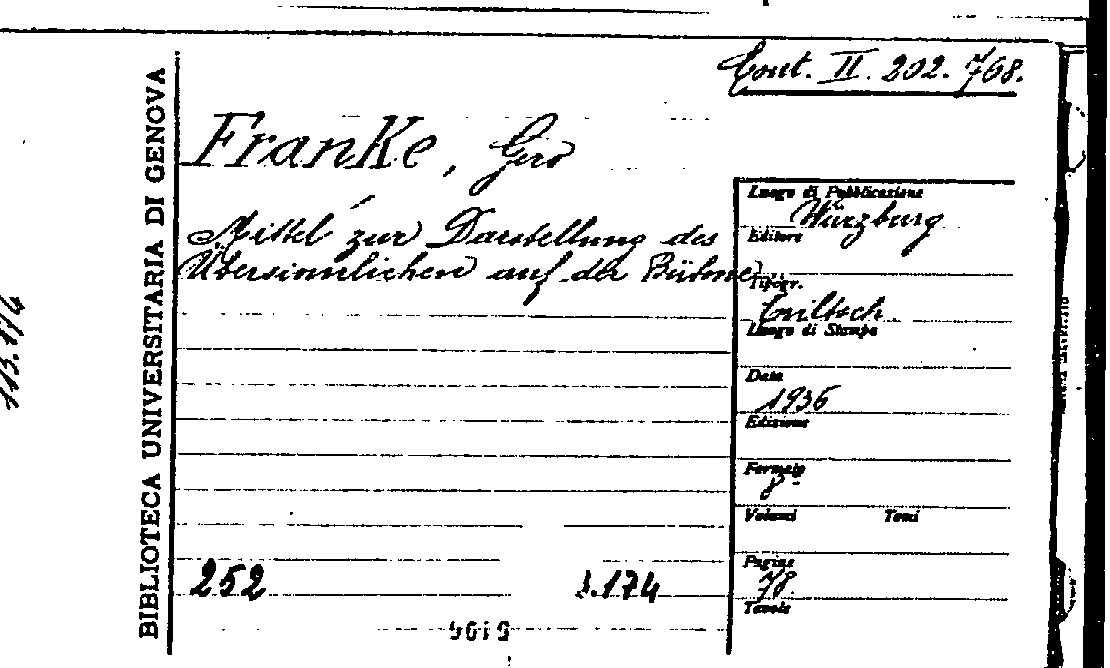 Cont. II. 202. 768.
BIBLIOTECA UNIVERSITARIA DI GENOVA
Franke, Gero
Mittel zur Darstellung des
Übersinnlichen auf der Bühne
Luogo di Pubblicazione
Würzburg
Editore
Tipogr.
Triltsch
Luogo di Stampa
Data
1936
Edizione
Formato
8°
Volumi Tomi
Pagine
78.
Tavole
252